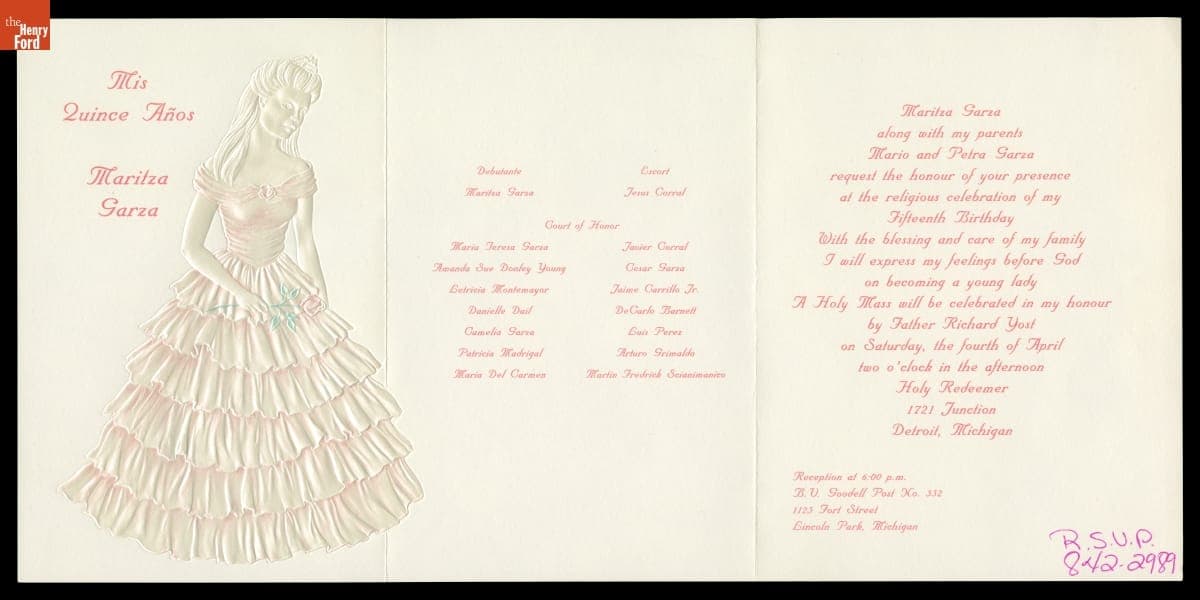 the
Henry
Ford
Mis
Quince Años
Maritza
Garza
Debutante Escort
Maritza Garza Jesus Corral
Court of Honor
Maria Teresa Garza Javier Corral
Amanda Sue Donley Young Cesar Garza
Leticicia Montemayor Jaime Carrillo Jr.
Danielle Dail DeCarlo Barnett
Camelia Garza Luis Perez
Patricia Madrigal Arturo Grimaldo
Maria Del Carmen Martin Fredrick Scianimanico
Maritza Garza
along with my parents
Mario and Petra Garza
request the honour of your presence
at the religious celebration of my
Fifteenth Birthday
With the blessing and care of my family
I will express my feelings before God
on becoming a young lady
A Holy Mass will be celebrated in my honour
by Father Richard Yost
on Saturday, the fourth of April
two o'clock in the afternoon
Holy Redeemer
1721 Junction
Detroit, Michigan
Reception at 6:00 p.m.
B.V. Goodell Post No. 332
1123 Fort Street
Lincoln Park, Michigan
R.S.V.P.
842-2989